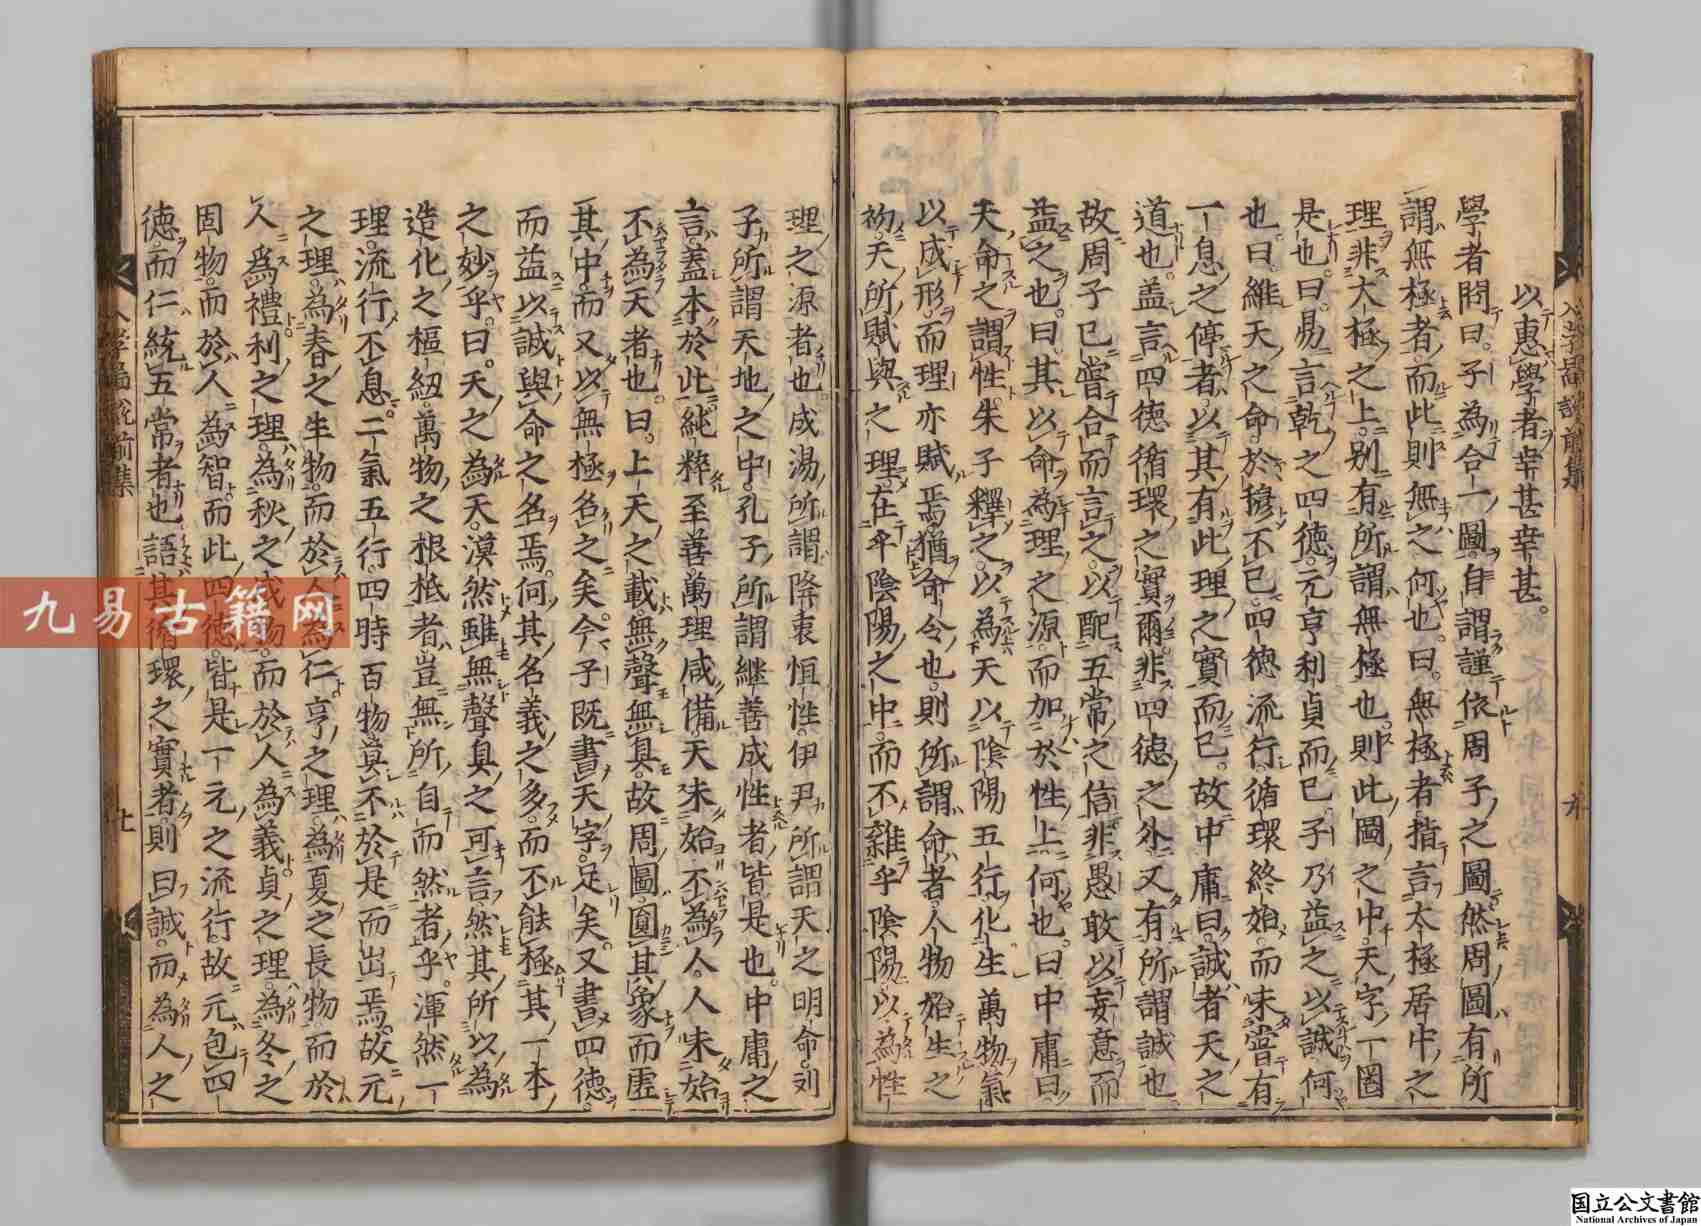 以惠學者幸甚幸甚。
學者問曰。子為合一圖。自謂謹依周子之圖。然周圖有所
謂無極者。而此則無之何也。曰。無極者指言太極居中之
理。非太極之上。別有所謂無極也。則此圖之中。天字一圈
是也。曰。易言乾之四德。元亨利貞而已。子乃益之以誠何
也。曰。維天之命。於穆不已。四德流行。循環終始。而未嘗有
一息之停者。以其有此理之實而已。故中庸曰。誠者天之
道也。盖言四德循環之實爾。非四德之外。又有所謂誠也
故周子已嘗合而言之。以配五常之信。非愚敢以妄意而
益之也。曰。其以命為理之源。而加於性上何也。曰中庸曰
天命之謂性。朱子釋之。以為天以陰陽五行。化生萬物。氣
以成形。而理亦賦焉。猶命令也。則所謂命者。人物始生之
初。天所賦與之理。在乎陰陽之中。而不雜乎陰陽。以為性
理之源者也。成湯所謂降衷恒性。伊尹所謂天之明命。劉
子所謂天地之中。孔子所謂繼善成性者。皆是也。中庸之
言。蓋本於此。純粹至善。萬理咸備。天未始不為人。人未始
不為天者也。曰。上天之載。無聲無臭。故周圖圓其象而虛
其中。而又以無極名之矣。今子既書天字。足矣。又書四德。
而益以誠與命之名焉。何其名義之多。而不能極其一本
之妙乎。曰。天之為天。漠然雖無聲臭之可言。然其所以為
造化之樞紐。萬物之根柢者。豈無所自而然者乎。渾然一
理。流行不息。二氣五行。四時百物。莫不於是而出焉。故元
之理。為春之生物。而於人為仁。亨之理。為夏之長物。而於
人為禮。利之理。為秋之成物。而於人為義。貞之理。為冬之
固物。而於人為智。而此四德。皆是一元之流行。故元包四
德。而仁統五常者也。語其循環之實者。則曰誠。而為人之
入學圖說前集
九
入學圖說前集
十
九易古籍网
国立公文書館
National Archives of Japan